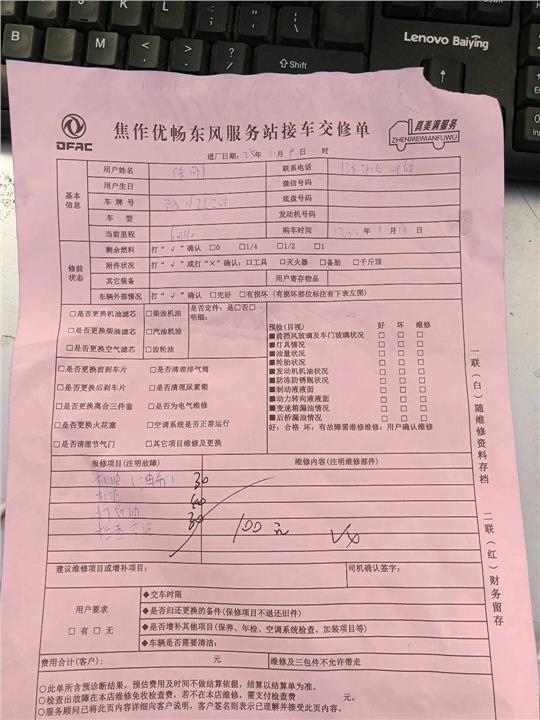 Lenovo Baiying
B
N
M
Shift
DFAC
焦作优畅东风服务站接车交修单
真美满服务
ZHENMEIMANFUWU
进厂日期: 年 11月 日 时
基本信息
用户姓名
联系电话
用户生日
微信号码
车牌号
底盘号
车型
发动机号码
当前里程
购车时间
年 1月 日
修前状态
剩余燃料 打“√”确认 □0 □1/4 □1/2 □1
附件状况 打“√”或打“×”确认:□工具 □灭火器 □备胎 □千斤顶
其它装备
用户寄存物品
车辆外部情况 打“√”确认 □完好 □有损坏(有损坏部位标注有下表左图)
□是否更换机油滤芯 □柴油机油 是否定件:是□否□
明细:
□是否更换柴油滤芯 □汽油机油
□是否更换空气滤芯 □齿轮油
□是否更换前刹车片 □是否清理排气筒
□是否更换后刹车片 □是否清理尿素箱
□是否更换离合三件套 □是否为电气维修
□是否更换火花塞 □空调系统是否正常运行
□是否清理节气门 □其它项目维修及更换
预检(目视) 好 坏 维修
■前挡风玻璃及车门玻璃状况 □ □ □
■灯具情况 □ □ □
■油量状况 □ □ □
■轮胎状况 □ □ □
■发动机机油状况 □ □ □
■防冻防锈瓶状况 □ □ □
■制动液液面 □ □ □
■动力转向液液面 □ □ □
■变速箱漏油情况 □ □ □
■后桥漏油情况 □ □ □
好:合格 坏:有故障需维修维修:用户确认维修
报修项目(注明故障)
维修内容(注明维修部件)
30
30
100元
建议维修项目或增补项目:
司机确认签字:
用户要求
□有□无
◆交车时限
◆是否归还更换的备件(保修项目不退还旧件)
◆是否增补其他项目(保养、年检、空调系统检查、加装项目等)
◆车辆是否需要清洁:
费用合计(客户): 元
维修及三包件不允许带走
○此单所含预诊断结果,预估费用及时间不做结算依据,结算以结算单为准。
○检查出故障在本店维修免收检查费,若不在本店维修,需支付检查费 元。
○服务顾问已将此页内容详细向客户说明,客户签名则表示已理解并接受此页内容。
一联(白)随维修资料存档
二联(红)财务留存